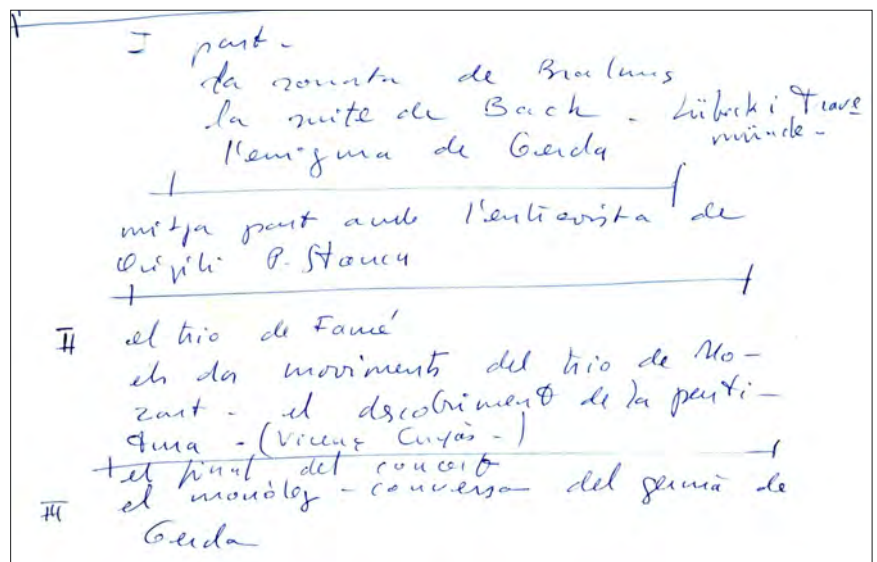 I part -
la sonata de Brahms
la suite de Bach - Lübeck i Trave
münde -
l'enigma de Gerda
mitja part amb l'entrevista de
Virgili P. Stancu
II el trio de Fauré
els dos moviments del trio de Mo-
zart - el descobriment de la parti-
tura - (Vicenç Cuyàs -)
el final del concert
III el monòleg - conversa del germà de
Gerda